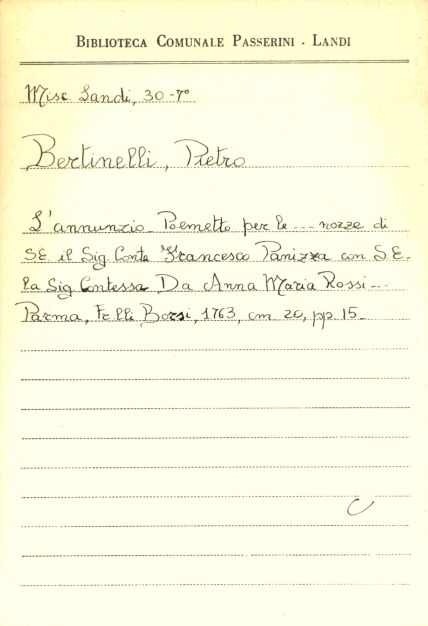 BIBLIOTECA COMUNALE PASSERINI - LANDI
Misc Landi, 30-7°
Bertinelli, Pietro
L'annunzio_ Poemetto per le --- nozze di
SE il Sig. Conte Francesco Panizza con S.E.
la Sig Contessa Da Anna Maria Rossi---
Parma, F.lli Borsi, 1763, cm 20, pp. 15_
C